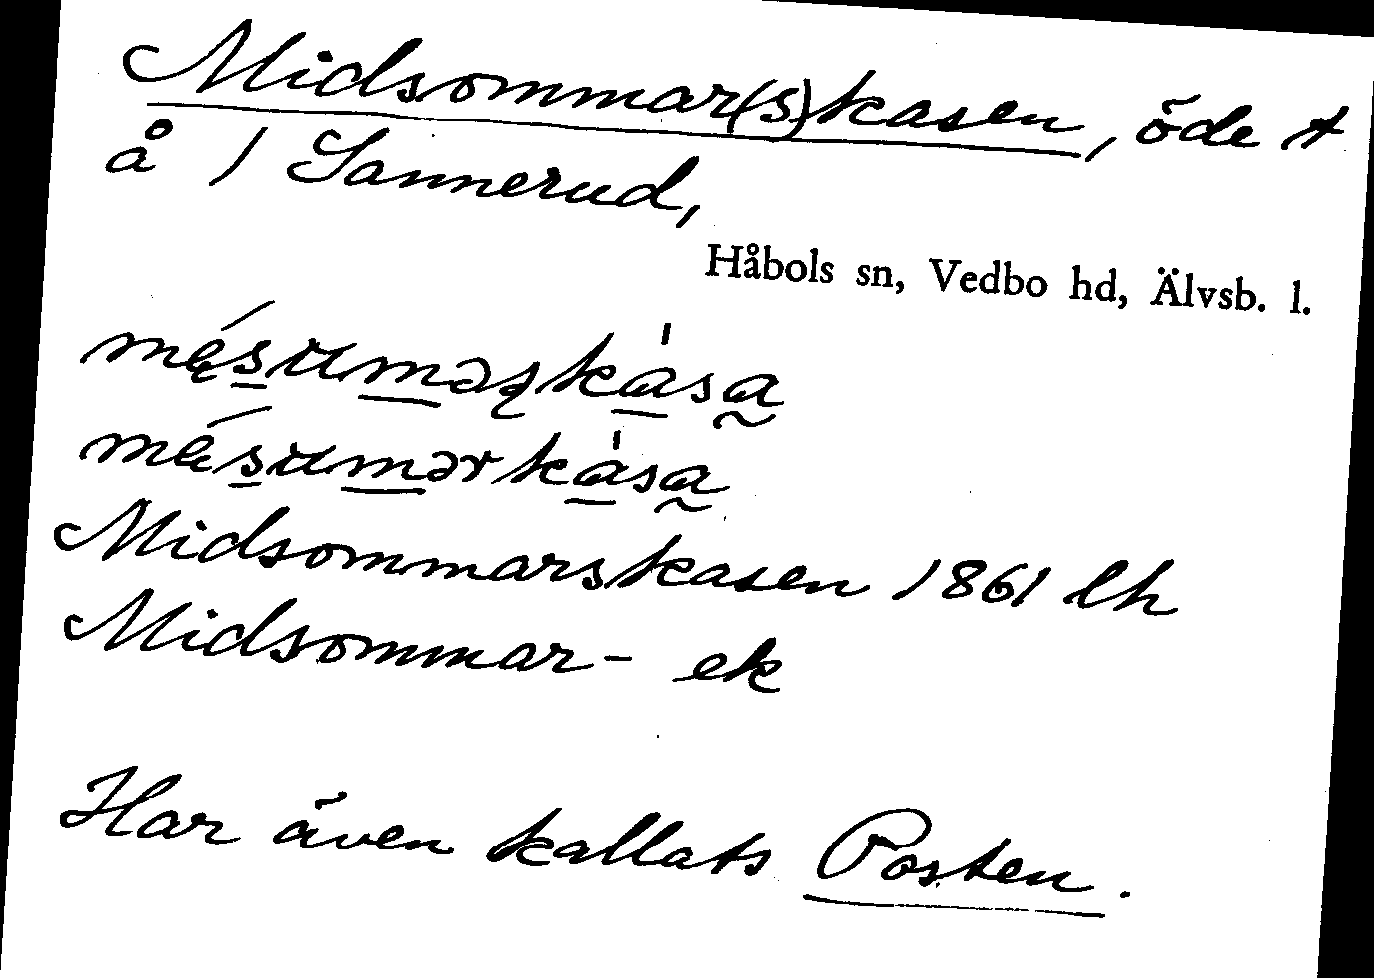 Midsommar(s)kasen, öde t
å 1 Sannerud,
Håbols sn, Vedbo hd, Älvsb. l.
Midsommarskasen 1861 lh
Midsommar- ek
Har även kallats Posten.